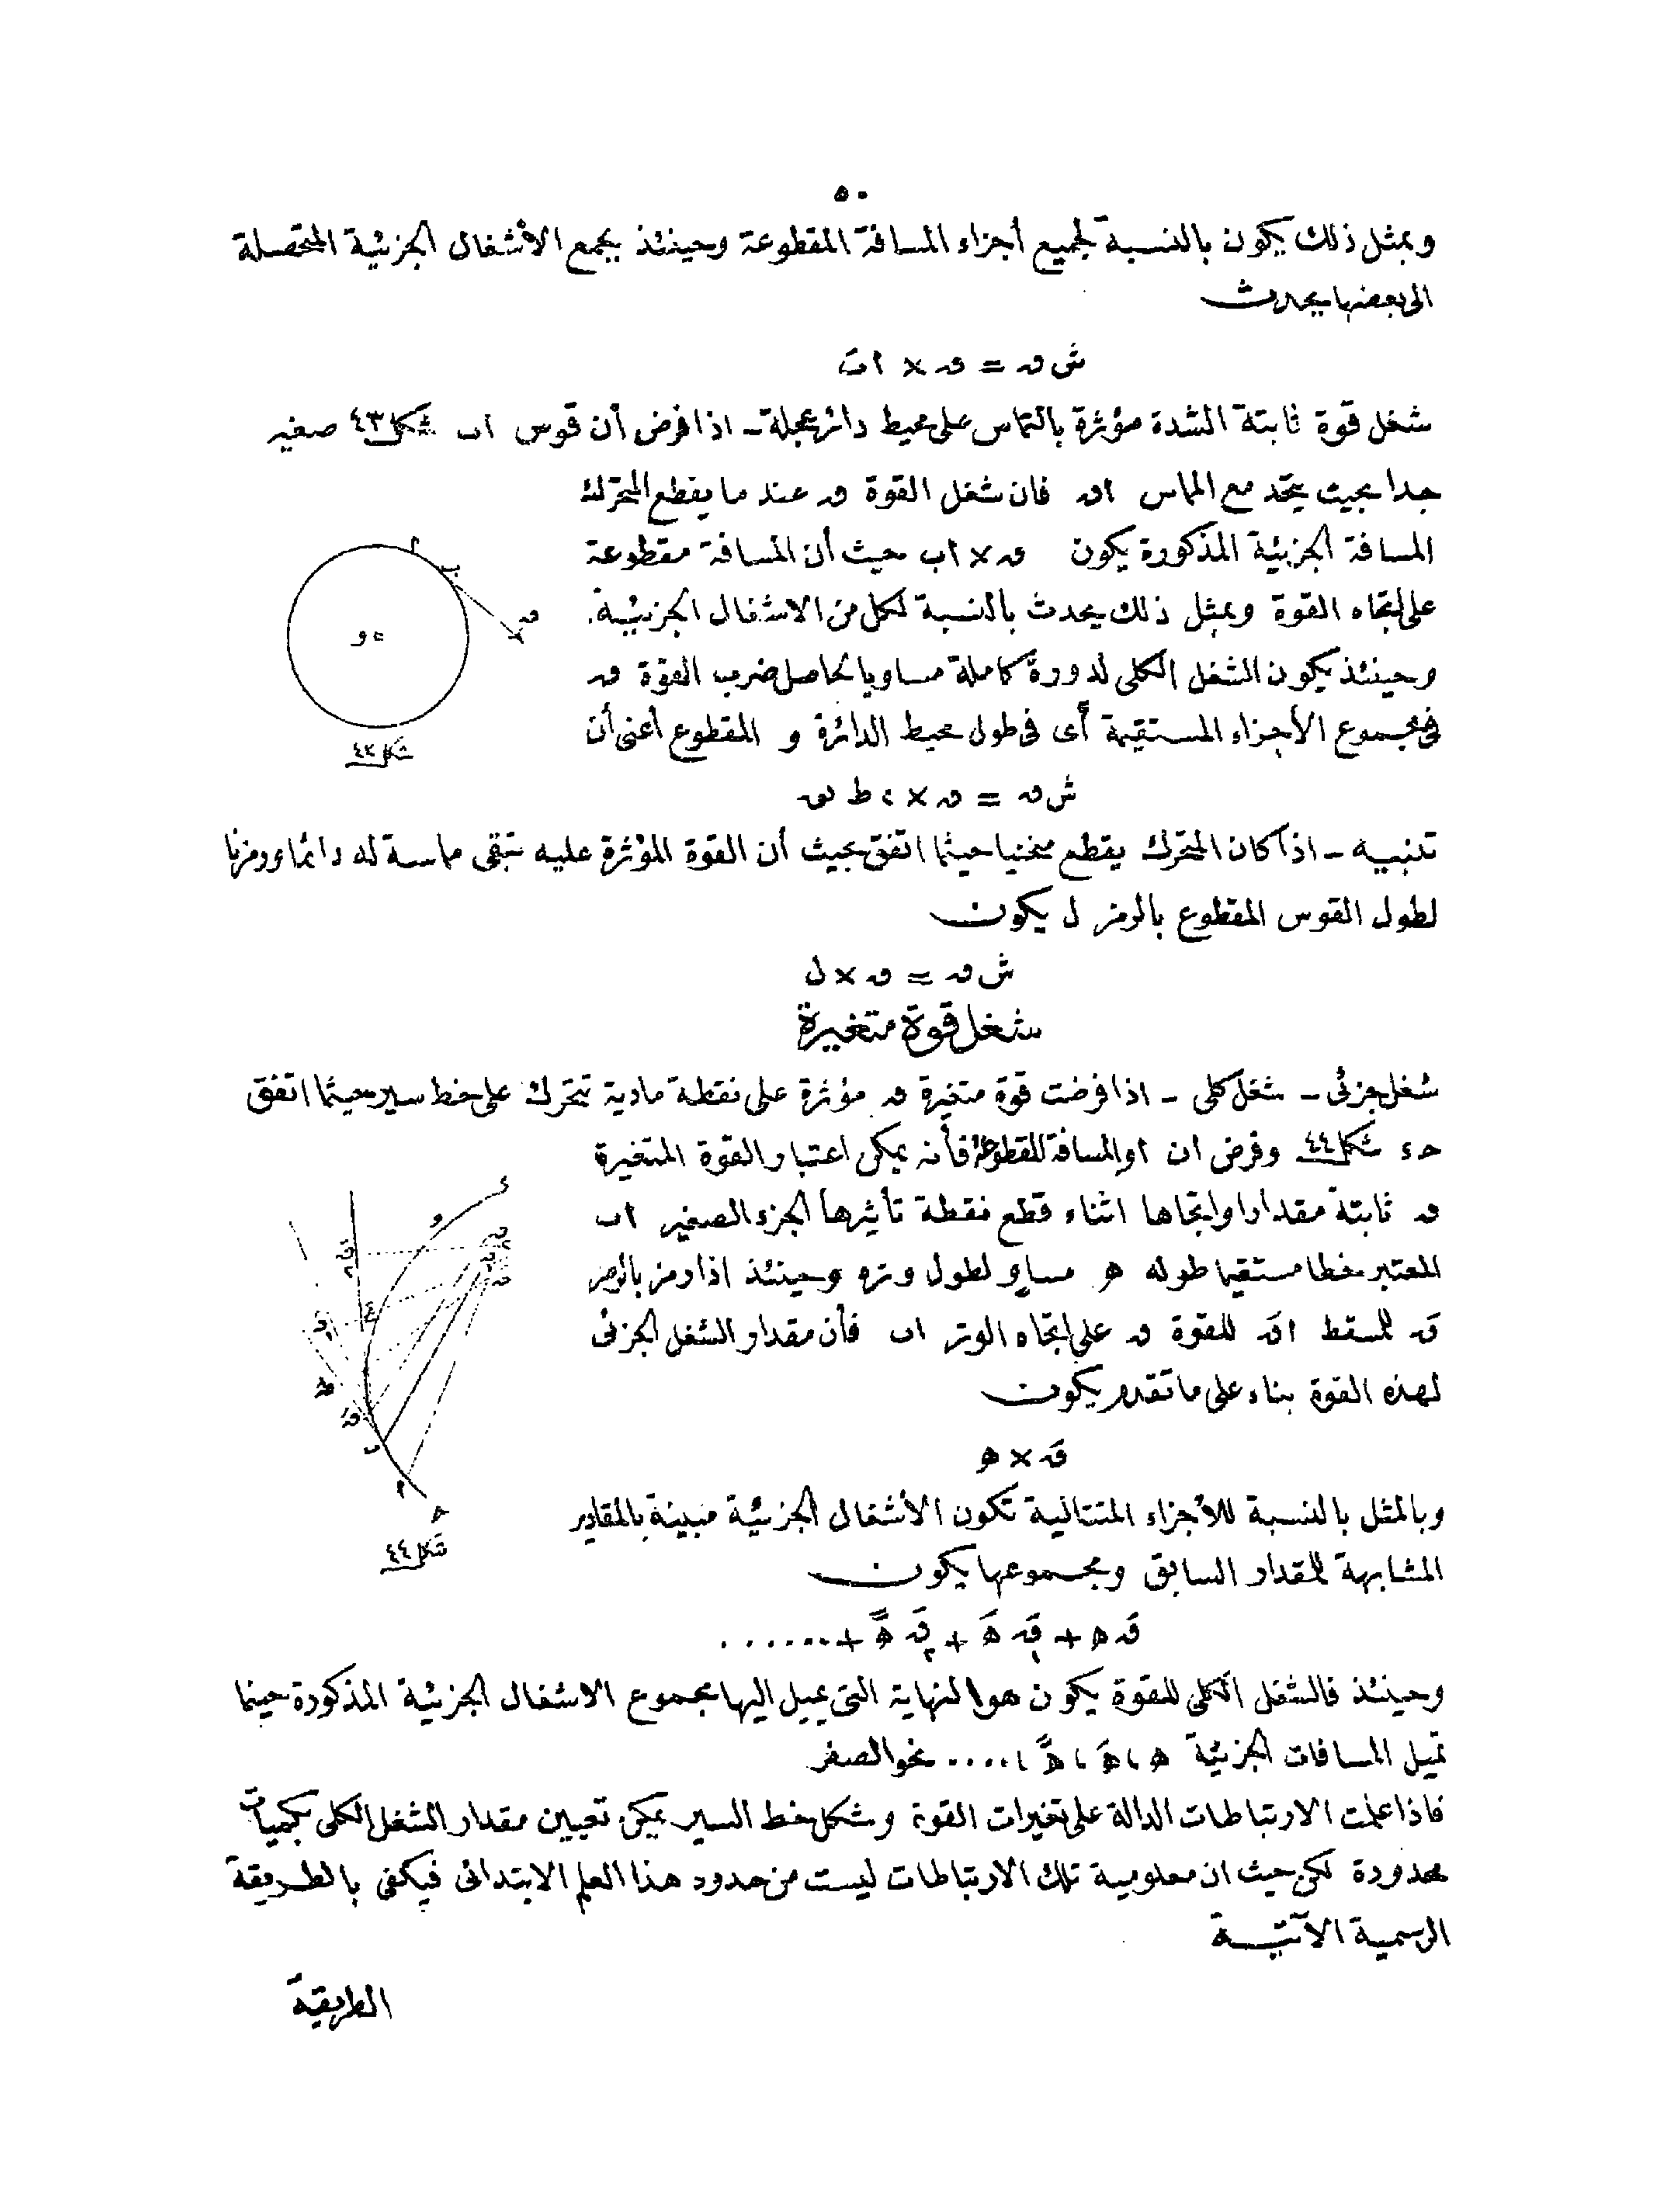 ٥٠
وبمثل ذلك يكون بالنسبة لجميع أجزاء المسافة المقطوعة وحينئذ بجمع الأشغال الجزئية المتحصلة
الى بعضها يحدث
ش ق = ق × اَبَ
شغل قوة ثابتة الشدة مؤثرة بالتماس على محيط دائر عجلة - اذا فرض أن قوس اب شكل ٤٣ صغير
جدا بحيث يتحد مع المماس اق فان شغل القوة ق عند ما يقطع المتحرّك
المسافة الجزئية المذكورة يكون ق × اب حيث أن المسافة مقطوعة
على اتجاه القوة وبمثل ذلك يحدث بالنسبة لكل من الاشغال الجزئية.
وحينئذ يكون الشغل الكلى لدورة كاملة مساويا لحاصل ضرب القوّة ق
فى مجموع الأجزاء المستقيمة أى فى طول محيط الدائرة و المقطوع أعنى أن
ا
ب
ق
و
شكل ٤٣
ش ق = ق × ٢ ط نق
تنبيه - اذا كان المتحرك يقطع منحنيا حيثما اتفق بحيث أن القوة المؤثرة عليه تبقى مماسة له دائما ورمزنا
لطول القوس المقطوع بالرمز ل يكون
ش ق = ق × ل
شغل قوة متغيرة
شغل جزئى - شغل كلى - اذا فرضت قوة متغيرة ق مؤثرة على نقطة مادية تتحرك على خط سير حيثما اتفق
حء شكل ٤٤ وفرض ان او المسافة المقطوعة فأنه يمكن اعتبار القوة المتغيرة
ق ثابتة مقدارا واتجاها اثناء قطع نقطة تأثيرها الجزء الصغير اب
المعتبر خطا مستقيما طوله ه مساو لطول وتره وحينئذ اذا رمز بالرمز
قَ للمسقط اقَ للقوة ق على اتجاه الوتر اب فأن مقدار الشغل الجزئى
لهذه القوة بناء على ما تقدم يكون
قَ × ه
وبالمثل بالنسبة للأجزاء المتتالية تكون الأشغال الجزئية مبينة بالمقادير
المشابهة للمقدار السابق ومجموعها يكون
شكل ٤٤
قَ ه + قَ١ هَ + قَ٢ هً + ......
وحينئذ فالشغل الكلى للقوة يكون هو النهاية التى يميل اليها مجموع الاشغال الجزئية المذكورة حينما
تميل المسافات الجزئية ه ، هَ ، هً ، .... نحو الصفر
فاذا علمت الارتباطات الدالة على تغيرات القوة وشكل خط السير يمكن تعيين مقدار الشغل الكلى بكميات
محدودة لكن حيث ان معلومية تلك الارتباطات ليست من حدود هذا العلم الابتدائى فيكفى بالطريقة
الرسمية الآتية
الطريقة